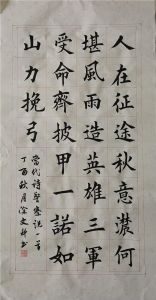 人在征途秋意濃何
堪風雨造英雄三軍
受命齊披甲一諾如
山力挽弓
當代詩醫塞說一首
丁酉秋月深文科書